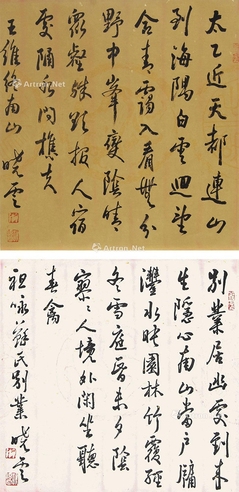 太乙近天都連山
到海隅白雲迴望
合青靄入看無分
野中峯變陰晴
眾壑殊欲投人宿
處隔水問樵夫
王維終南山 曉雲
別業居幽處到來
生隱心南山當戶牖
灃水映園林竹覆經
冬雪庭昏未夕陰
寥々人境外閑坐聽
春禽
祖詠蘇氏別業 曉雲
Artron.Net